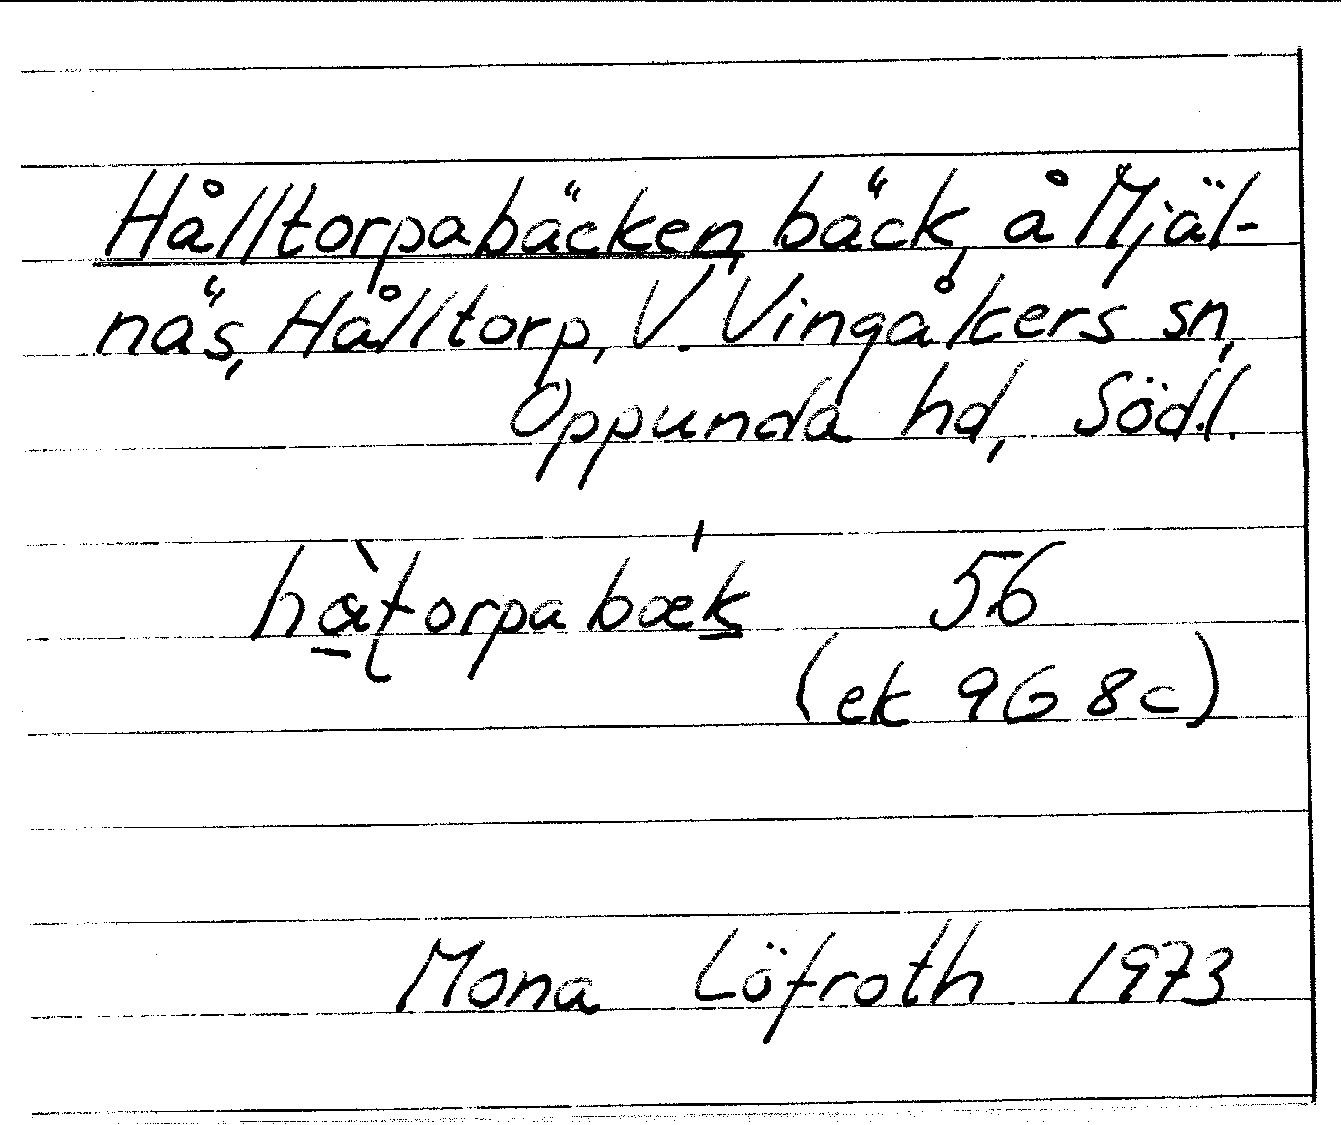 Hålltorpabäcken, bäck, å Mjäl-
näs, Hålltorp, V. Vingåkers sn,
Oppunda hd, Södl.
56
(ek 9G 8c)
Mona Löfroth 1973